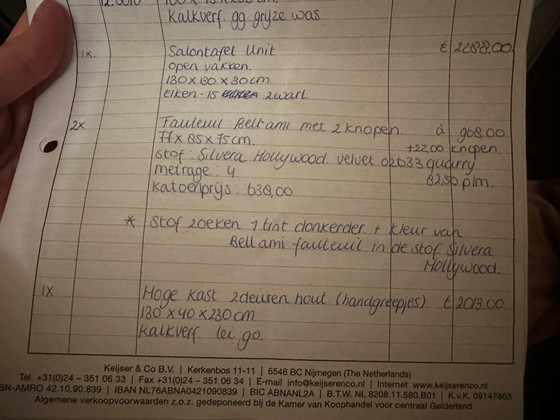 kalkverf. gg grijze was
1x. Salontafel Unit € 2288,00
open vakken.
130 x 130 x 30cm.
Eiken - 15 zwart
2x Fauteuil Bellami met 2 knopen. à 968,00
77 x 85 x 75cm. +22,00 knopen.
stof: Silvera Hollywood velvet 02033 quarry
metrage: 4 82,50 p/m.
katoenprijs: 638,00
* Stof zoeken 1 tint donkerder + kleur van
Bellami fauteuil in de stof Silvera
Hollywood.
1x Hoge kast 2deuren hout (handgreepjes) € 2013,00
130 x 40 x 230cm
kalkverf. lei go
Keijser & Co B.V. | Kerkenbos 11-11 | 6546 BC Nijmegen (The Netherlands)
Tel. +31(0)24 – 351 06 33 | Fax +31(0)24 – 351 06 34 | E-mail info@keijserenco.nl | Internet www.keijserenco.nl
BN-AMRO 42.10.90.839 | IBAN NL76ABNA0421090839 | BIC ABNANL2A | B.T.W. NL 8208.11.580.B01 | K.v.K. 09147863
Algemene verkoopvoorwaarden z.o.z. gedeponeerd bij de Kamer van Koophandel voor centraal Gelderland